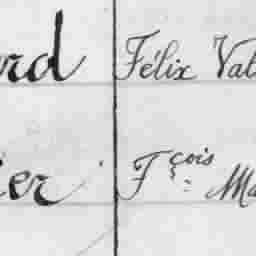 rd Félix Val
er Fçois Ma